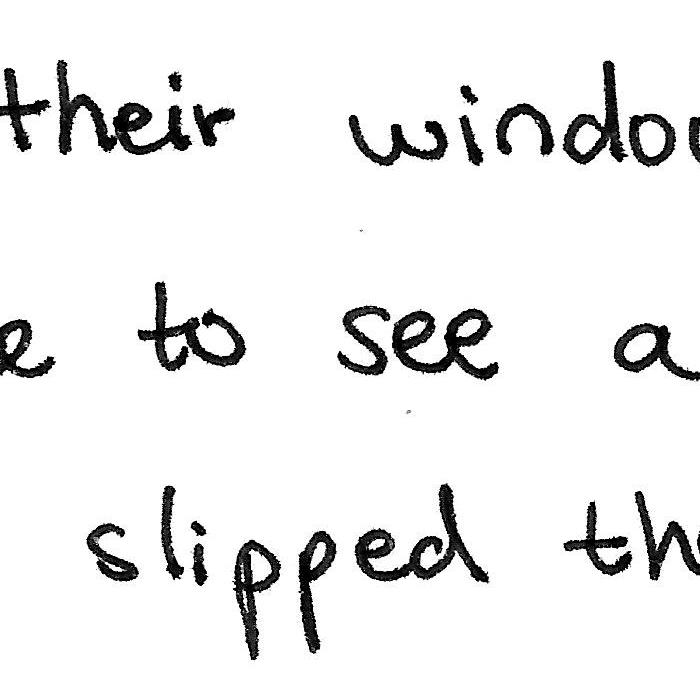 their windo
e to see a
slipped th